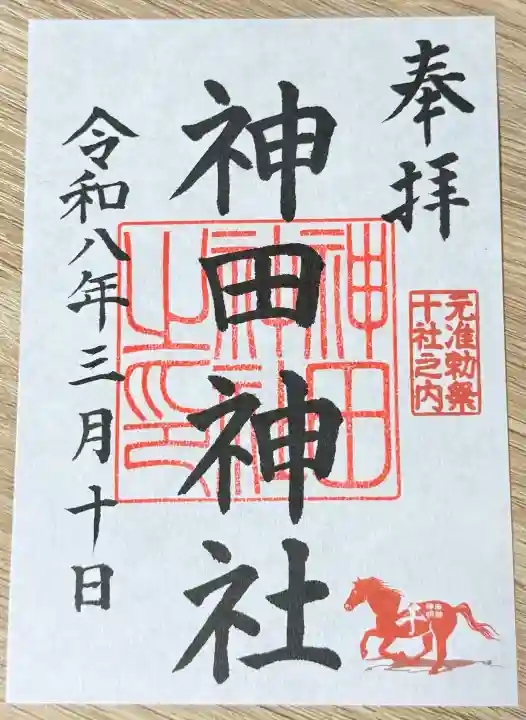 奉拝
元准勅祭
十社之内
神田神社
神田
神社
之印
令和八年三月十日